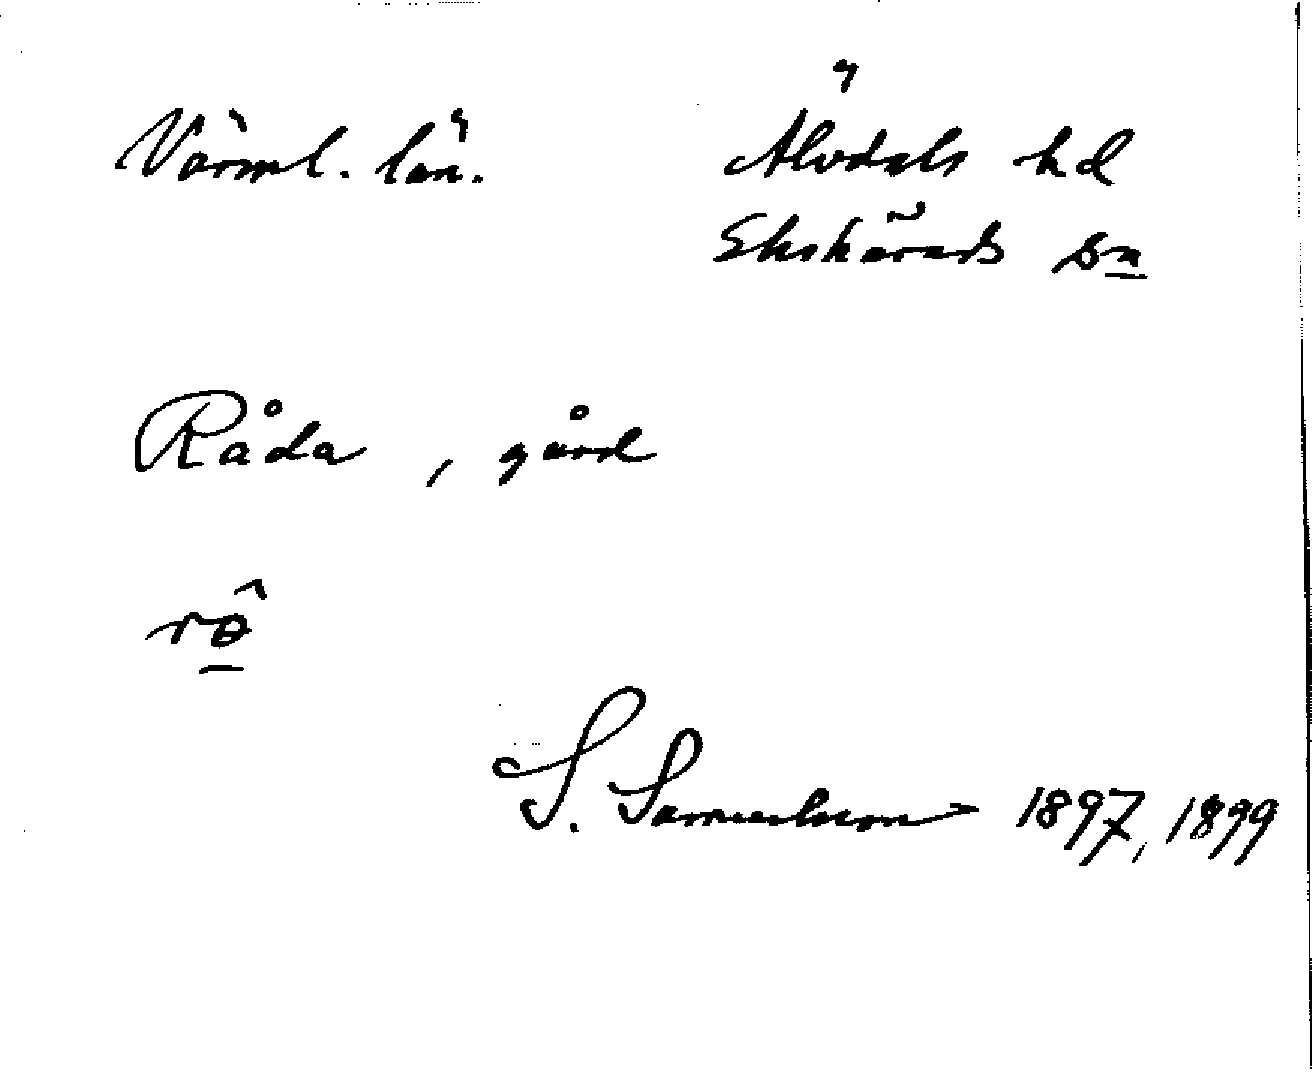 Värml. län. Älvdals hd
Ekshärads sn
Råda, gård
rô̱
S. Samuelsson 1897, 1899